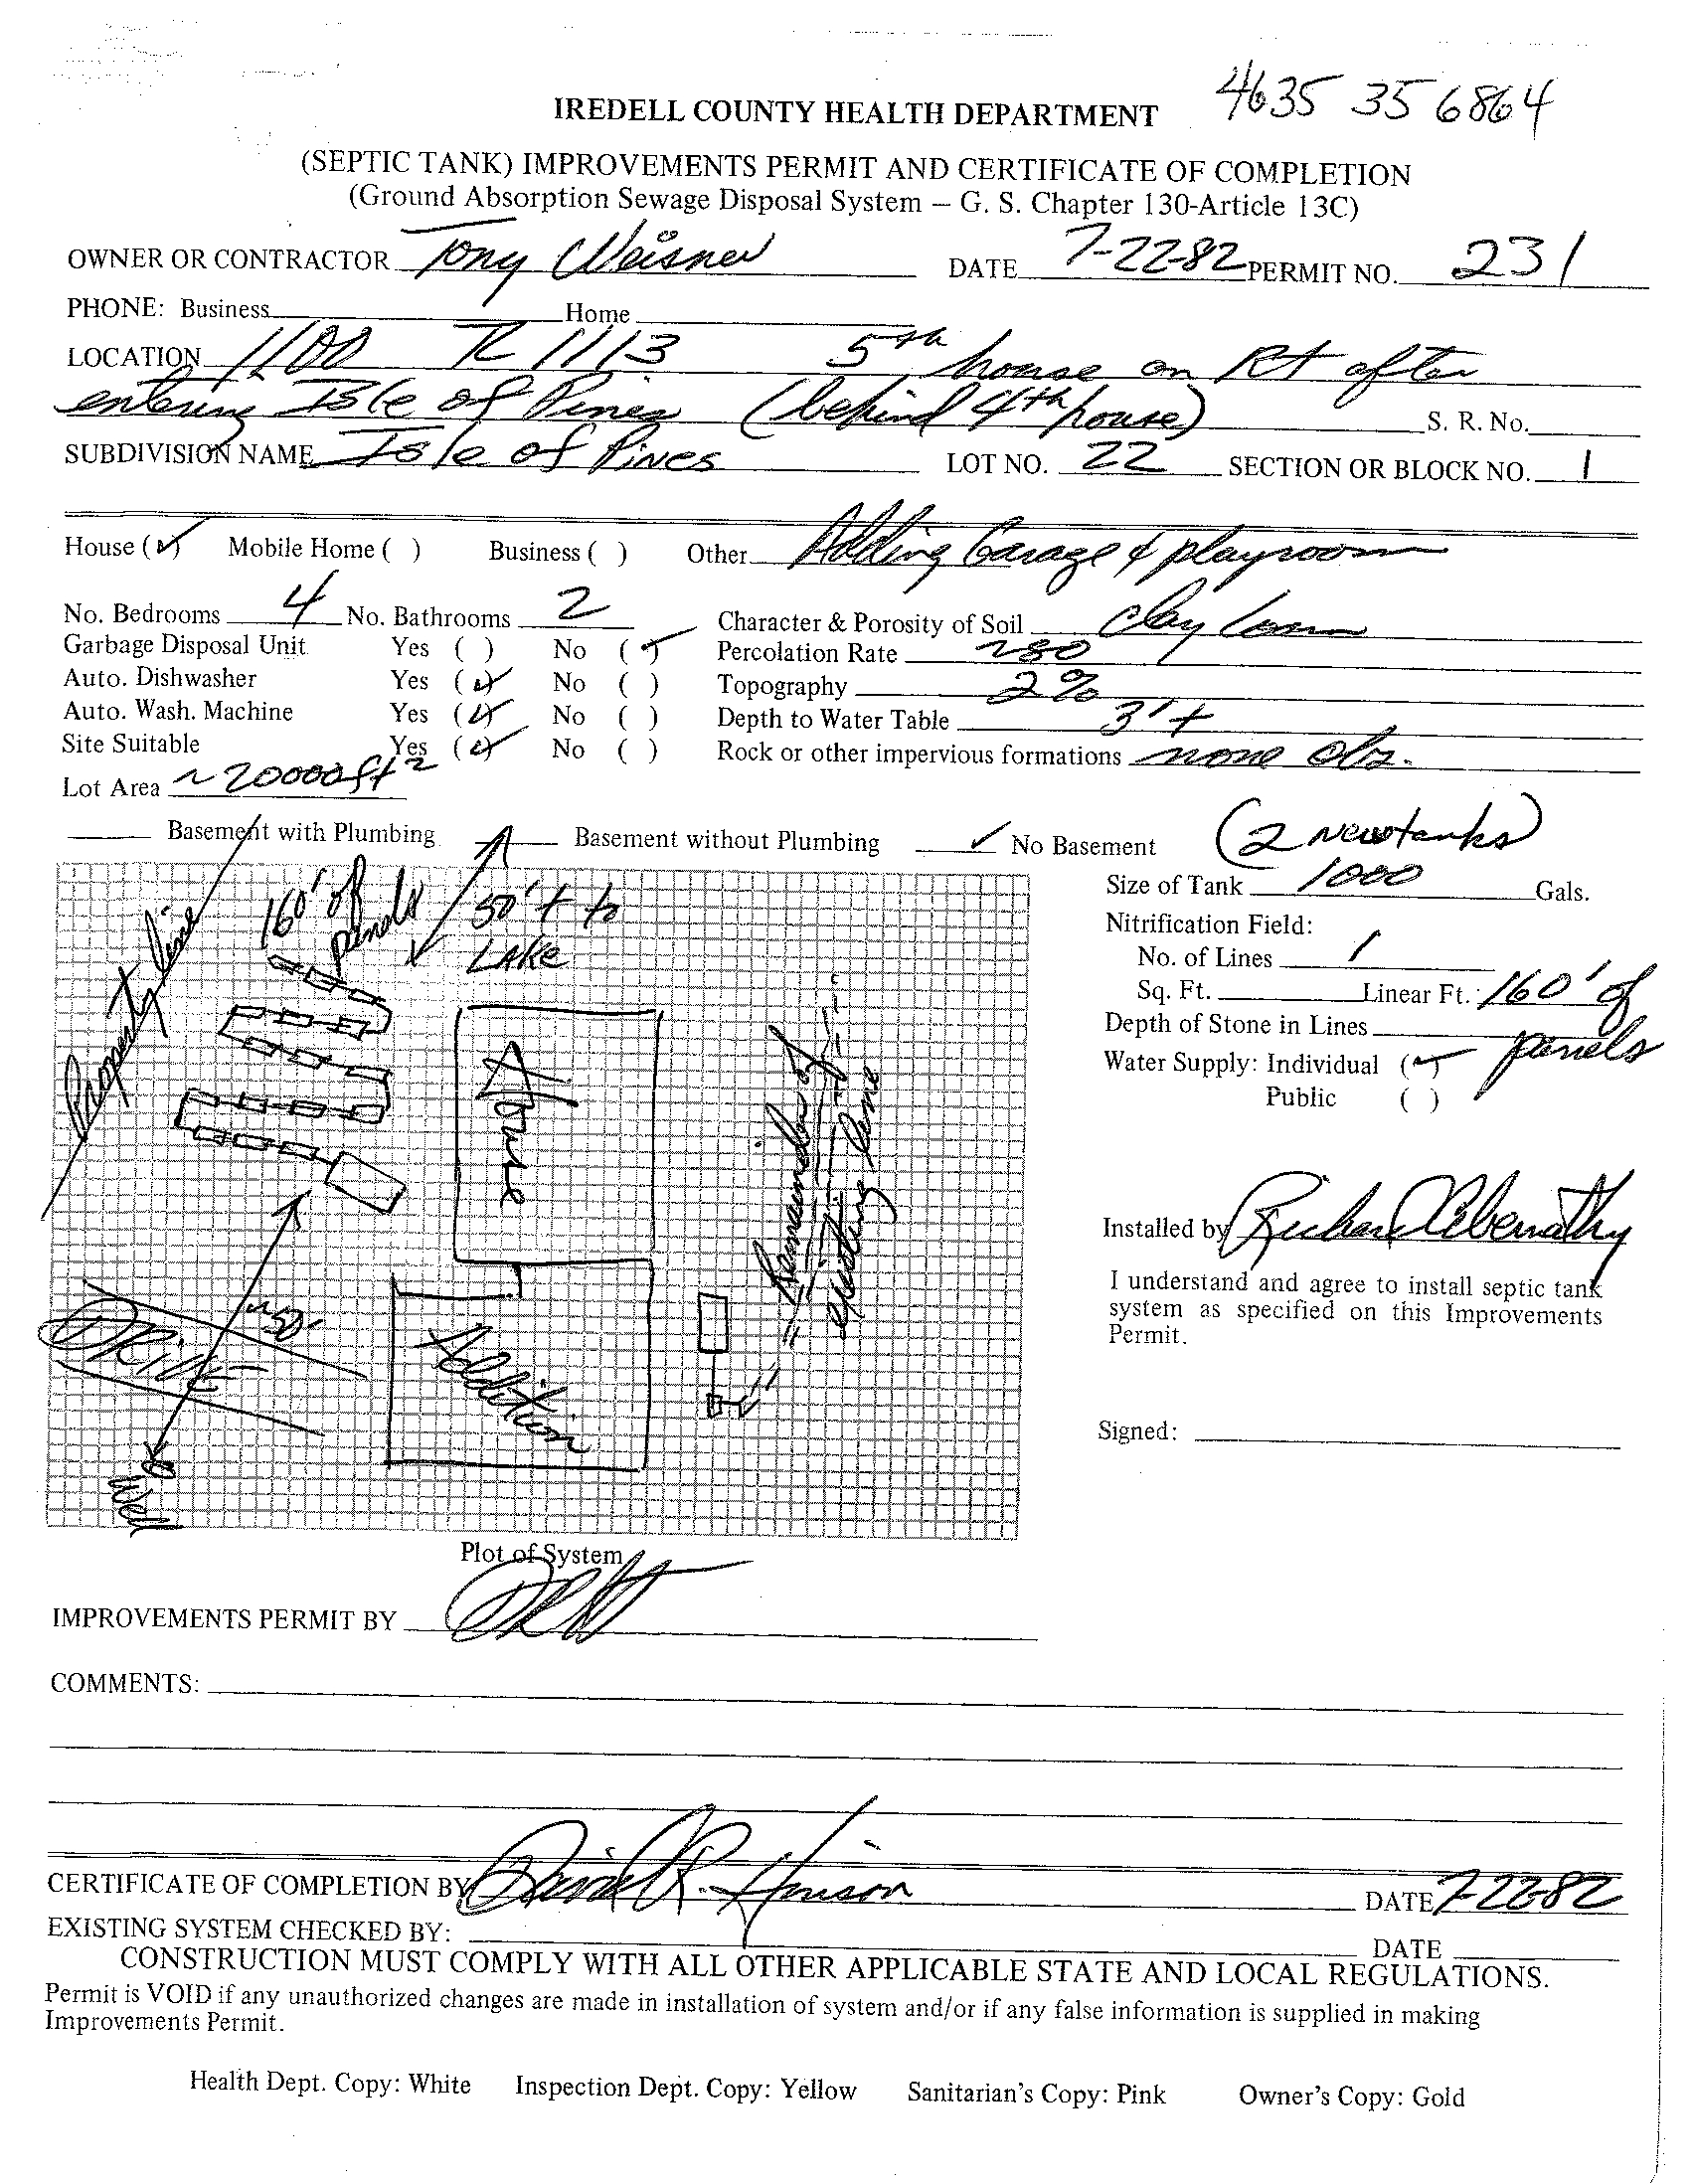 4635 35 6864
IREDELL COUNTY HEALTH DEPARTMENT
(SEPTIC TANK) IMPROVEMENTS PERMIT AND CERTIFICATE OF COMPLETION
(Ground Absorption Sewage Disposal System – G. S. Chapter 130-Article 13C)
OWNER OR CONTRACTOR Tony Weisner DATE 7-22-82 PERMIT NO. 231
PHONE: Business Home
LOCATION 1100 R 1113 5th house on Rt after
entering Isle of Pines (behind 4th house) S. R. No.
SUBDIVISION NAME Isle of Pines LOT NO. 22 SECTION OR BLOCK NO. 1
House (✓) Mobile Home ( ) Business ( ) Other Adding Garage & playroom
No. Bedrooms 4 No. Bathrooms 2 Character & Porosity of Soil clay loam
Garbage Disposal Unit Yes ( ) No (✓) Percolation Rate ~80
Auto. Dishwasher Yes (✓) No ( ) Topography 2%
Auto. Wash. Machine Yes (✓) No ( ) Depth to Water Table 3'+
Site Suitable Yes (✓) No ( ) Rock or other impervious formations none obs.
Lot Area ~20000 ft2
Basement with Plumbing Basement without Plumbing ✓ No Basement (2 New tanks)
Size of Tank 1000 Gals.
Nitrification Field:
No. of Lines 1
Sq. Ft. Linear Ft. 160' of
panels
Depth of Stone in Lines
Water Supply: Individual (✓)
Public ( )
Property line
160' of
panels
50'+ to
LAKE
House
Remainder of
existing line
Addition
Drive
~50'
Well
Installed by Richard Abernathy
I understand and agree to install septic tank
system as specified on this Improvements
Permit.
Signed:
Plot of System
IMPROVEMENTS PERMIT BY DRH
COMMENTS:
CERTIFICATE OF COMPLETION BY David R. Hinson DATE 7-22-82
EXISTING SYSTEM CHECKED BY: DATE
CONSTRUCTION MUST COMPLY WITH ALL OTHER APPLICABLE STATE AND LOCAL REGULATIONS.
Permit is VOID if any unauthorized changes are made in installation of system and/or if any false information is supplied in making
Improvements Permit.
Health Dept. Copy: White Inspection Dept. Copy: Yellow Sanitarian's Copy: Pink Owner's Copy: Gold